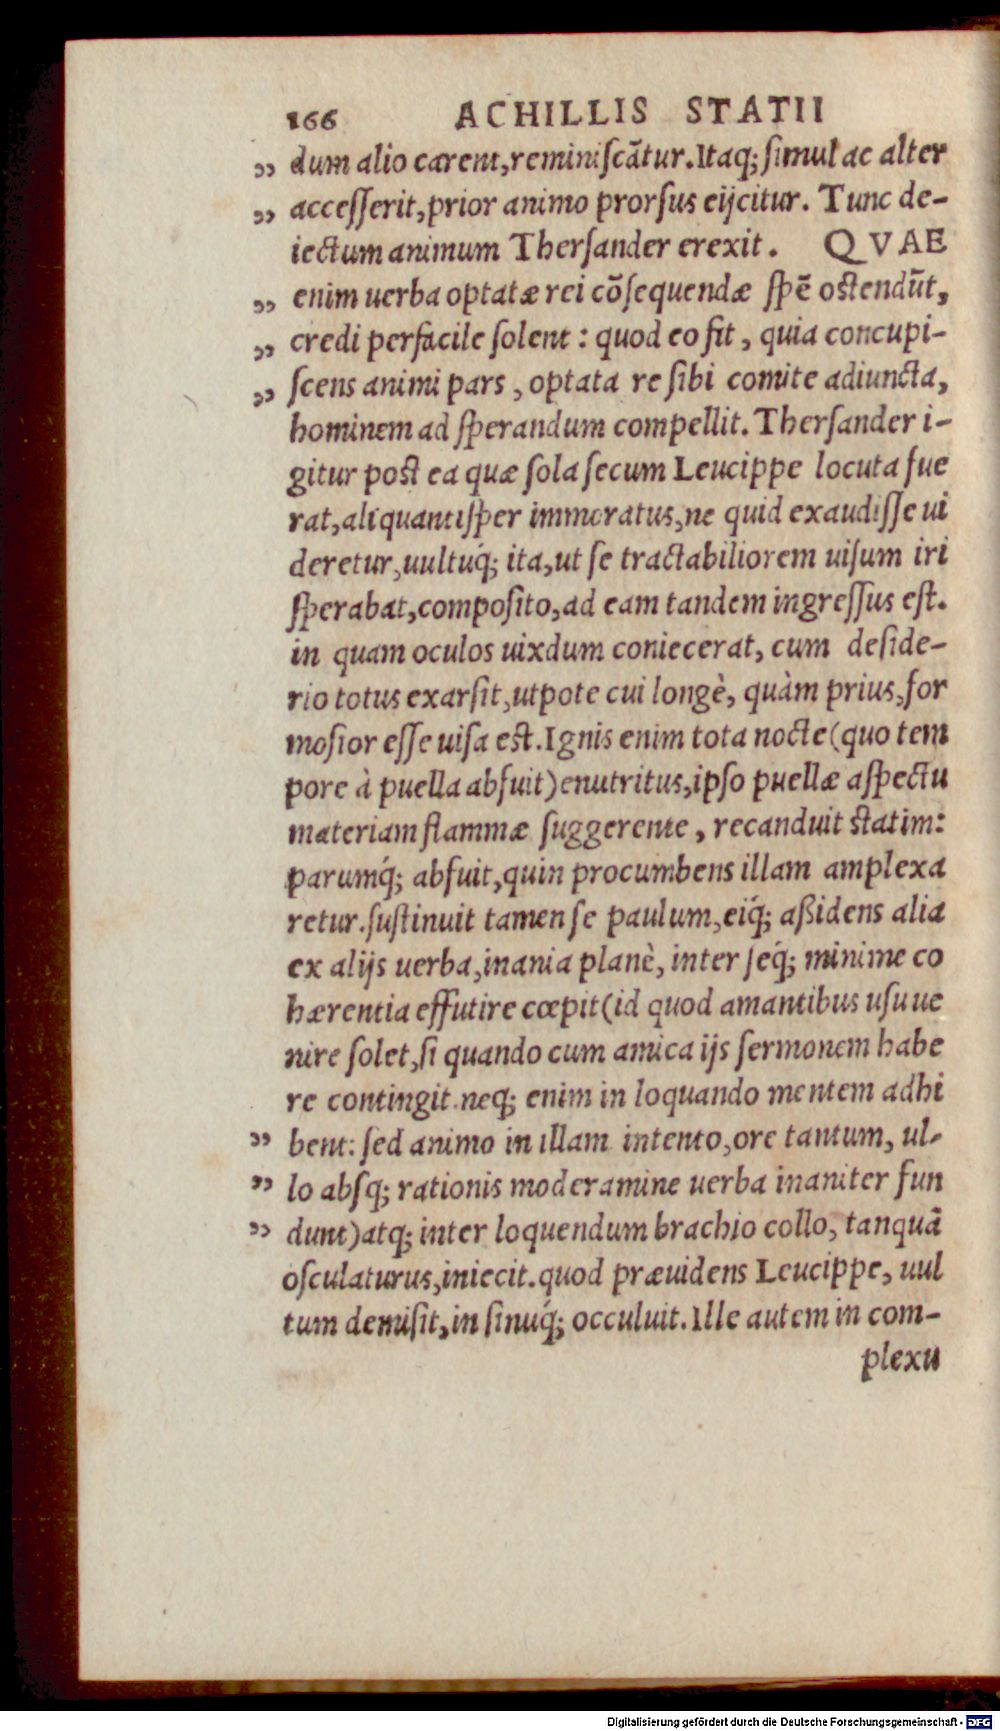 166 ACHILLIS STATII
„ dum alio carent, reminiſcãtur. Itaq; ſimul ac alter
„ acceſſerit, prior animo prorſus eijcitur. Tunc de-
iectum animum Therſander erexit. QVAE
„ enim uerba optatæ rei cõſequendæ ſpẽ oſtendũt,
„ credi perfacile ſolent: quod eo fit, quia concupi-
„ ſcens animi pars, optata re ſibi comite adiuncta,
hominem ad ſperandum compellit. Therſander i-
gitur poſt ea quæ ſola ſecum Leucippe locuta fue
rat, aliquantiſper immoratus, ne quid exaudiſſe ui
deretur, uultuq́; ita, ut ſe tractabiliorem uiſum iri
ſperabat, compoſito, ad eam tandem ingreſſus eſt.
in quam oculos uixdum coniecerat, cum deſide-
rio totus exarſit, utpote cui longè, quàm prius, for
moſior eſſe uiſa eſt. Ignis enim tota nocte (quo tem
pore à puella abfuit) enutritus, ipſo puellæ aſpectu
materiam flammæ ſuggerente, recanduit ſtatim:
parumq́; abfuit, quin procumbens illam amplexa
retur. ſuſtinuit tamen ſe paulum, eiq́; aßidens alia
ex alijs uerba, inania planè, inter ſeq́; minime co
hærentia effutire cœpit (id quod amantibus uſu ue
nire ſolet, ſi quando cum amica ijs ſermonem habe
re contingit. neq; enim in loquando mentem adhi
„ bent: ſed animo in illam intento, ore tantum, ul-
„ lo abſq; rationis moderamine uerba inaniter fun
„ dunt) atq; inter loquendum brachio collo, tanquã
oſculaturus, iniecit. quod præuidens Leucippe, uul
tum demiſit, in ſinuq́; occuluit. Ille autem in com-
plexu
Digitalisierung gefördert durch die Deutsche Forschungsgemeinschaft - DFG